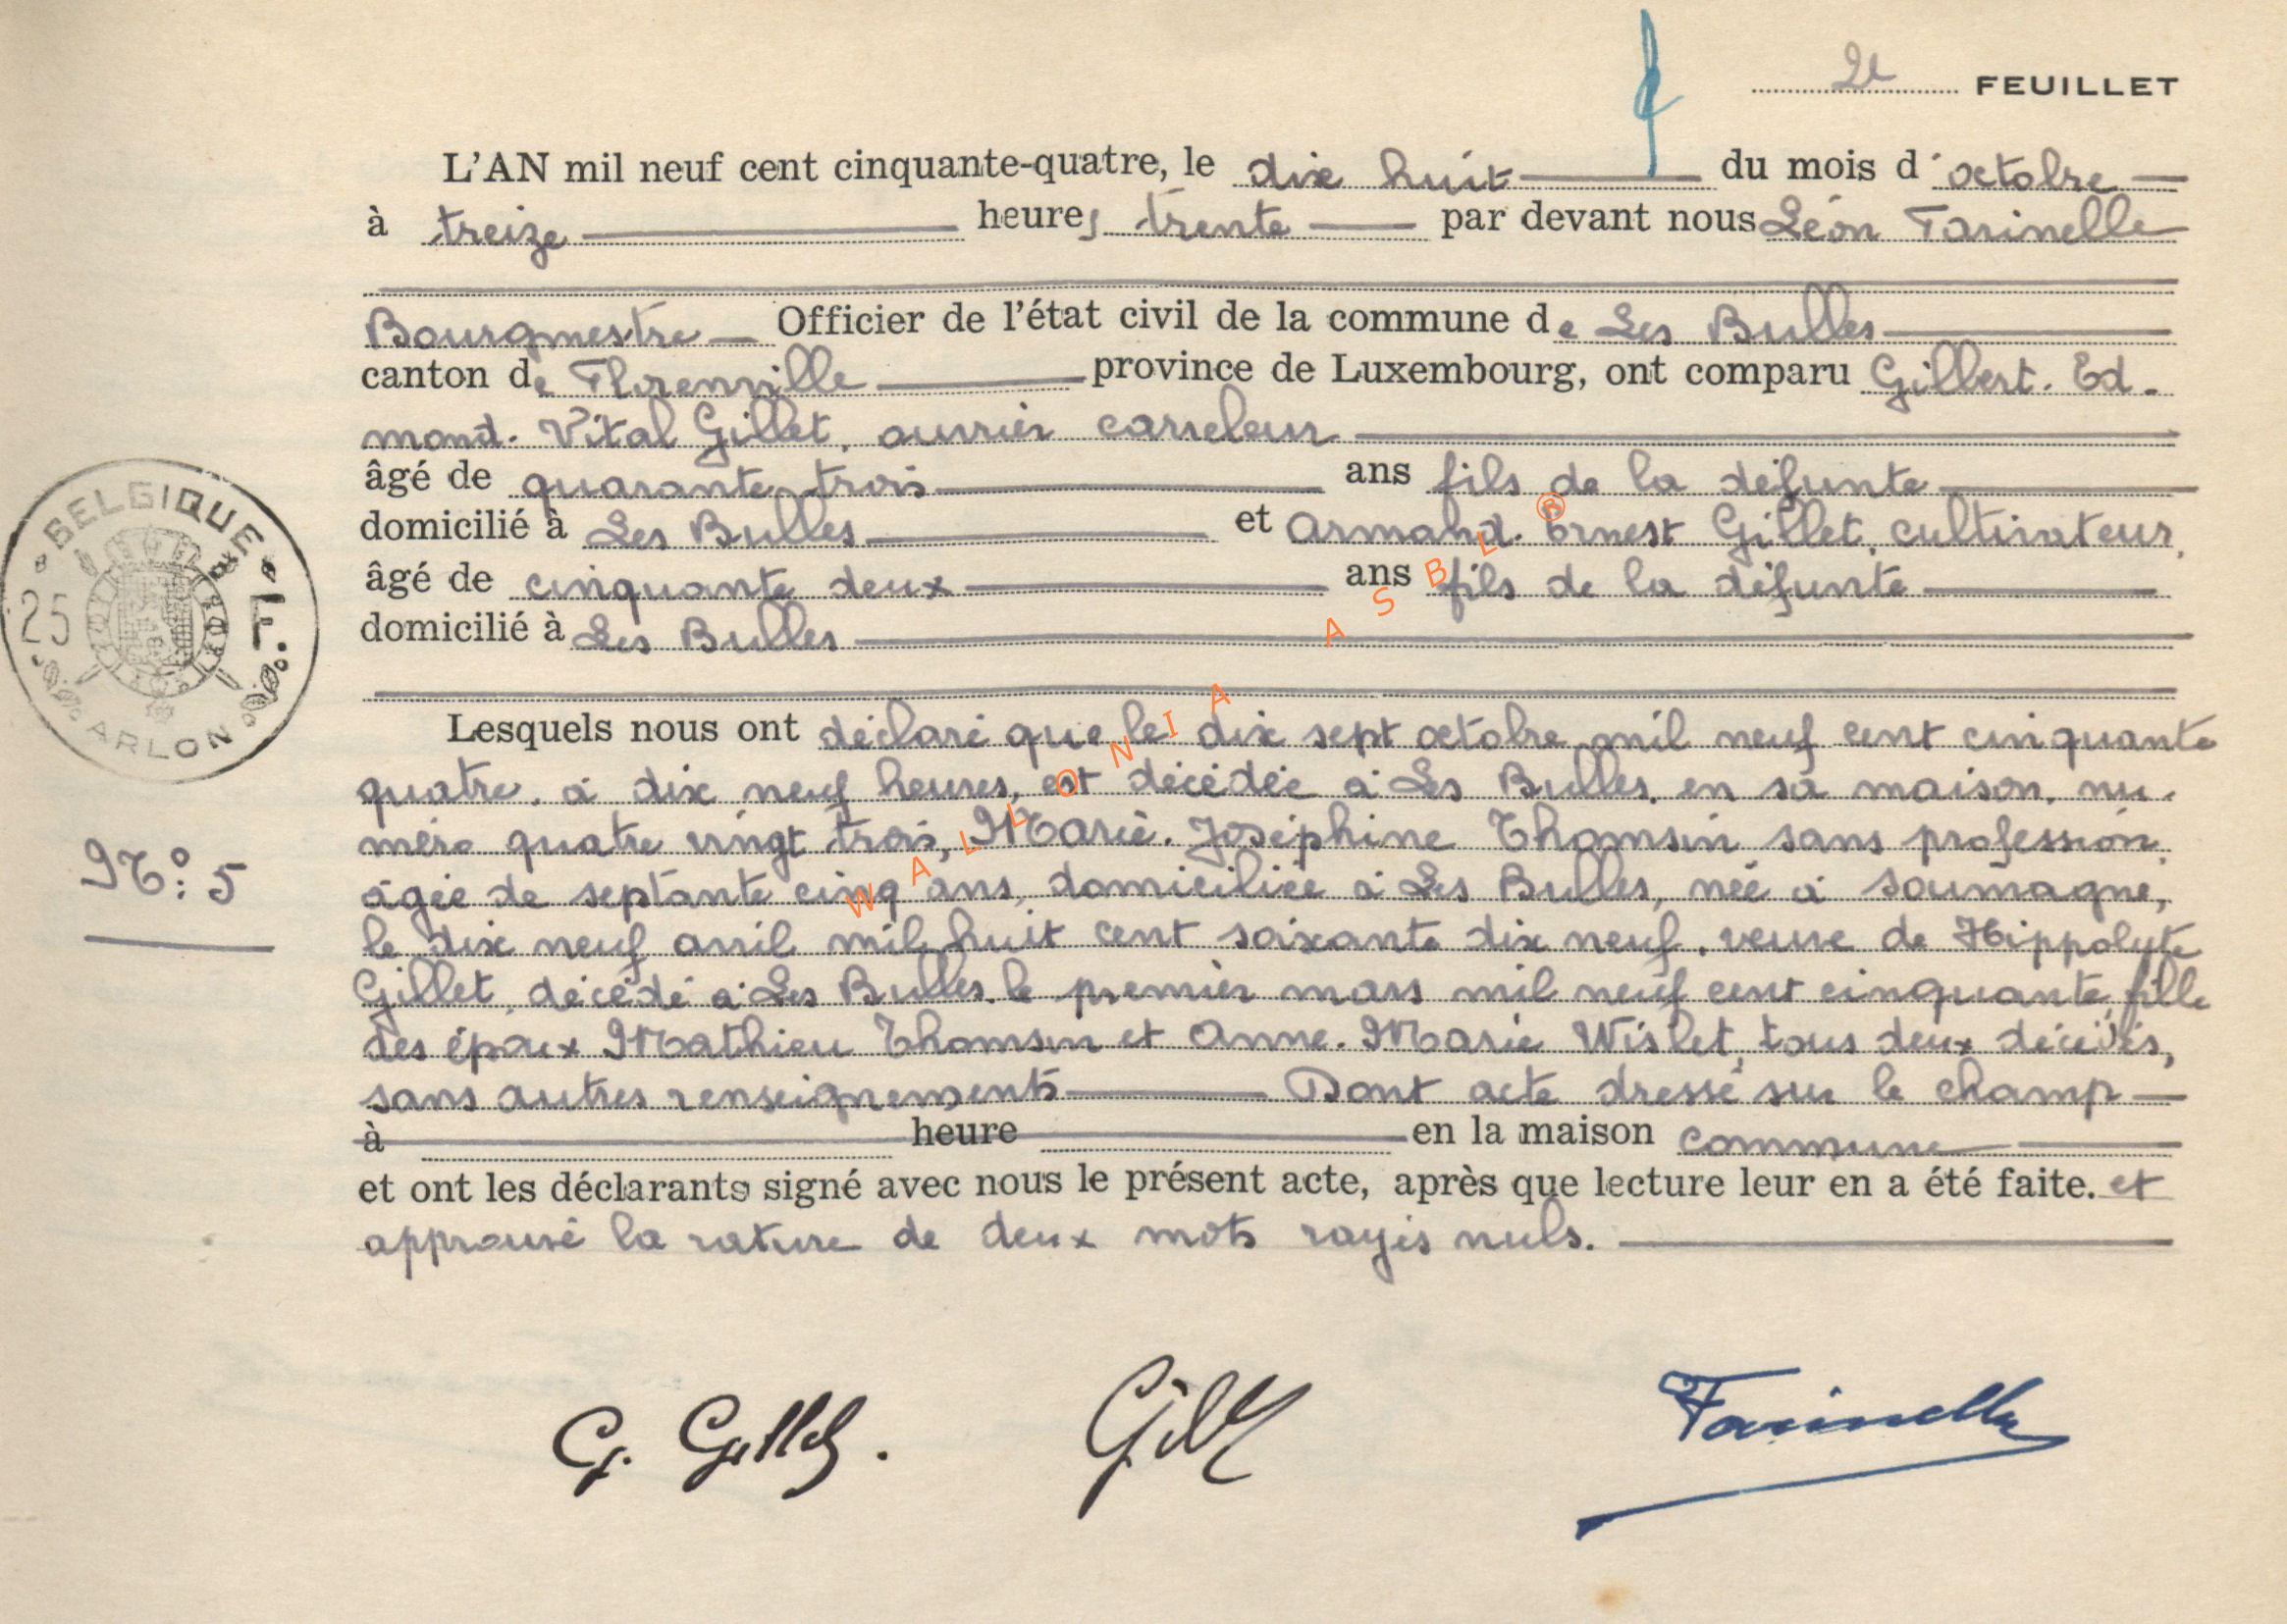 2e FEUILLET
L'AN mil neuf cent cinquante-quatre, le dix huit du mois d'octobre
à treize heures trente par devant nous Léon Farinelle
Bourgmestre Officier de l'état civil de la commune de Les Bulles
canton de Florenville province de Luxembourg, ont comparu Gilbert. Ed-
mond. Vital Gillet, ouvrier carreleur
âgé de quarante trois ans fils de la défunte
domicilié à Les Bulles et Armand. Ernest Gillet, cultivateur,
âgé de cinquante deux ans fils de la défunte
domicilié à Les Bulles
BELGIQUE
25 F.
ARLON
WALLONIA ASBL ®
Lesquels nous ont déclaré que le dix sept octobre mil neuf cent cinquante
quatre, à dix neuf heures, est décédée à Les Bulles, en sa maison, nu-
méro quatre vingt trois, Marie. Joséphine Thomsin sans profession,
âgée de septante cinq ans, domiciliée à Les Bulles, née à Soumagne,
N°: 5
le dix neuf avril mil huit cent soixante dix neuf, veuve de Hippolyte
Gillet, décédé à Les Bulles le premier mars mil neuf cent cinquante, fille
des époux Mathieu Thomsin et Anne. Marie Wislet, tous deux décédés,
sans autres renseignements Dont acte dressé sur le champ
à heure en la maison commune
et ont les déclarants signé avec nous le présent acte, après que lecture leur en a été faite. et
approuvé la rature de deux mots rayés nuls.
G. Gillet. Gillet Farinelle